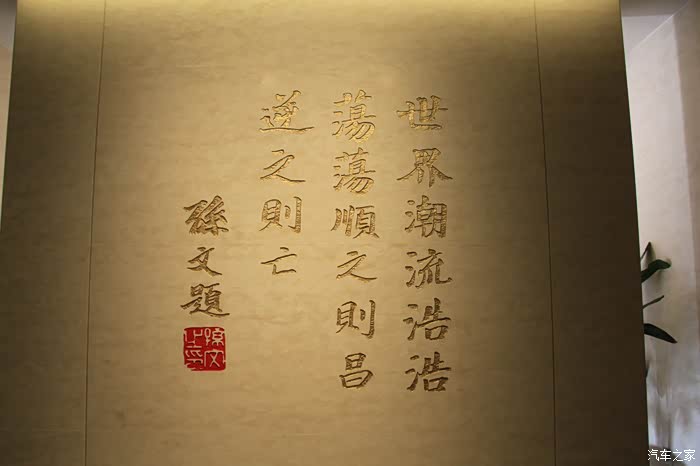 世界潮流浩浩
蕩蕩順之則昌
逆之則亡
孫文題
孫文之印
汽车之家